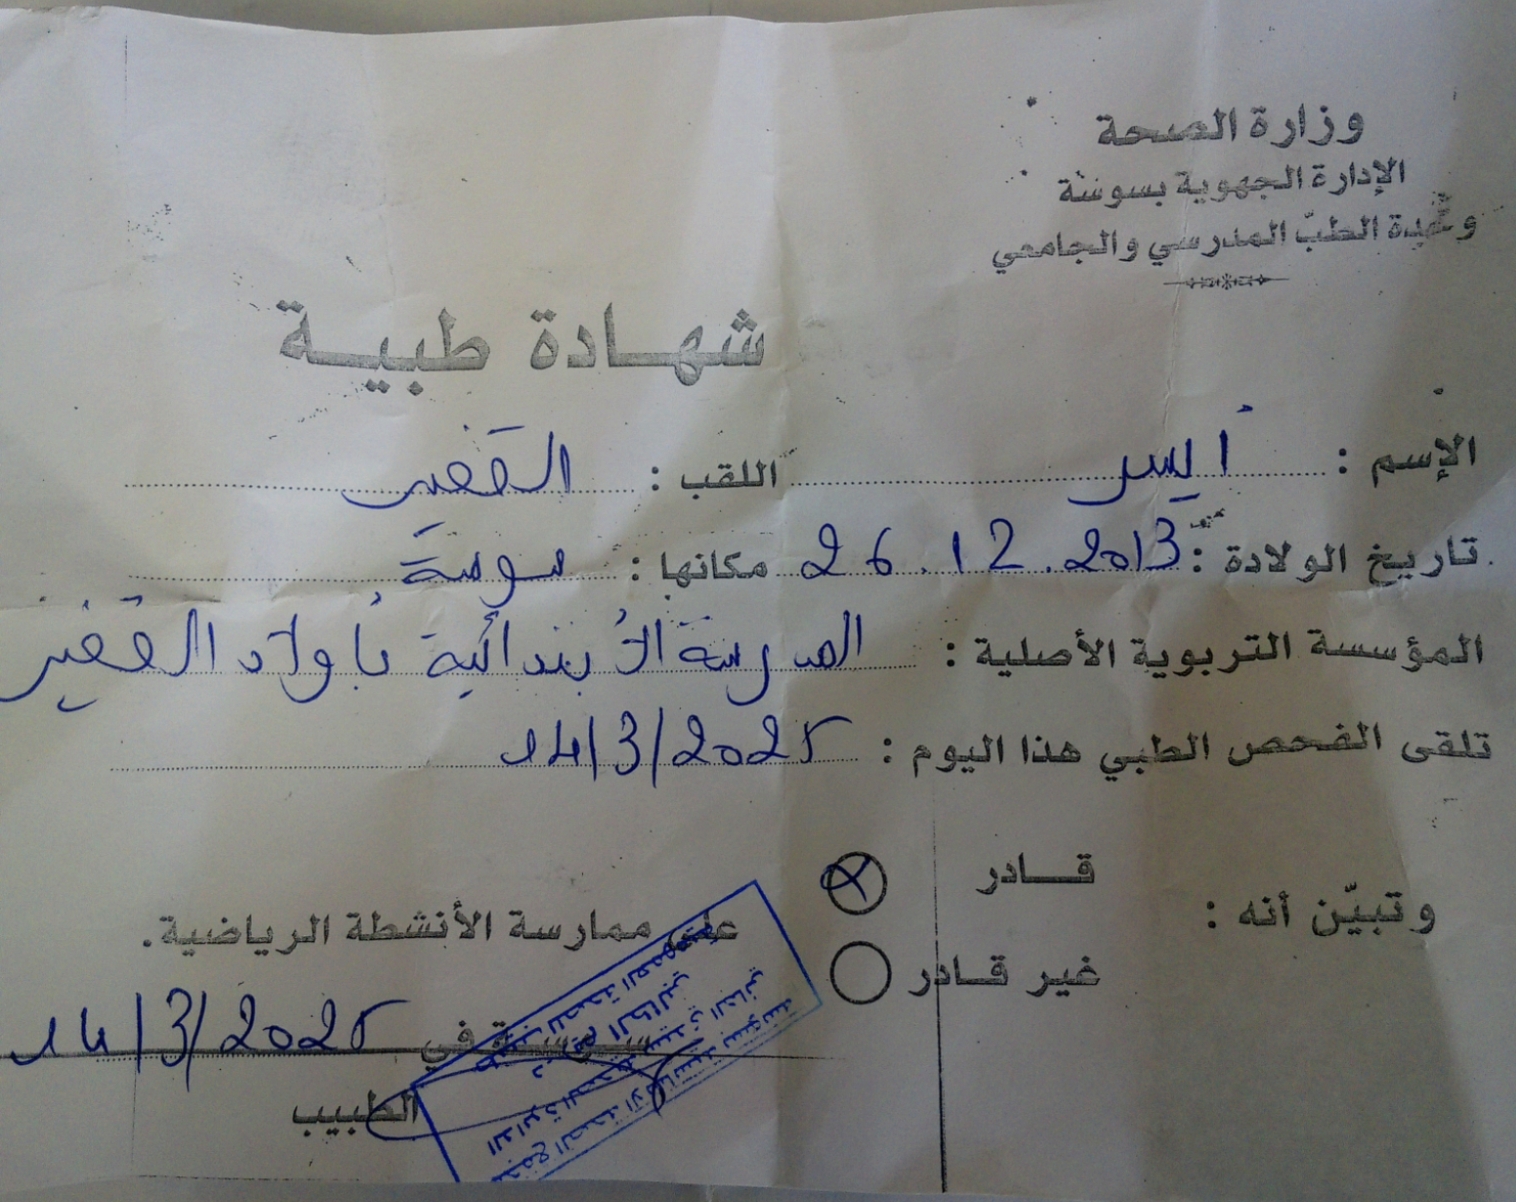 وزارة الصحة
الإدارة الجهوية بسوسة
وحدة الطبّ المدرسي والجامعي
شهـادة طبيـة
الإسم : اليسر اللقب : القصير
تاريخ الولادة : 26.12.2013 مكانها : سوسة
المؤسسة التربوية الأصلية : المدرسة الابتدائية بأولاد القصير
تلقى الفحص الطبي هذا اليوم : 14/3/2025
وتبيّن أنه :
قـادر
غير قادر
على ممارسة الأنشطة الرياضية.
سوسة في 14/3/2025
الطبيب